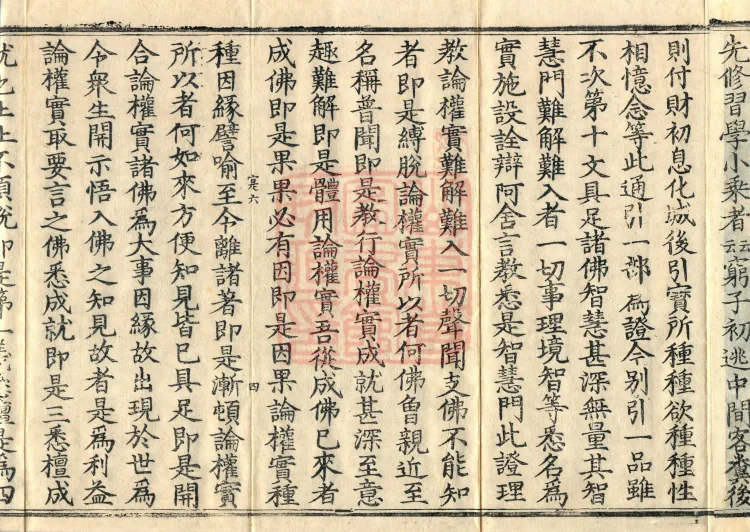 先修習學小乘者云云窮子初逃中間客作後
則付財初息化城後引寶所種種欲種種性
相憶念等此通引一部為證今別引一品雖
不次第十文具足諸佛智慧甚深無量其智
慧門難解難入者一切事理境智等悉名為
實施設詮辯阿舍言教悉是智慧門此證理
教論權實難解難入一切聲聞支佛不能知
者即是縛脫論權實所以者何佛曾親近至
名稱普聞即是教行論權實成就甚深至意
趣難解即是體用論權實吾從成佛已來者
成佛即是果果必有因即是因果論權實種
寔六
四
種因緣譬喻至令離諸著即是漸頓論權實
所以者何如來方便知見皆已具足即是開
合論權實諸佛為大事因緣故出現於世為
令衆生開示悟入佛之知見故者是為利益
論權實取要言之佛悉成就即是三悉檀成